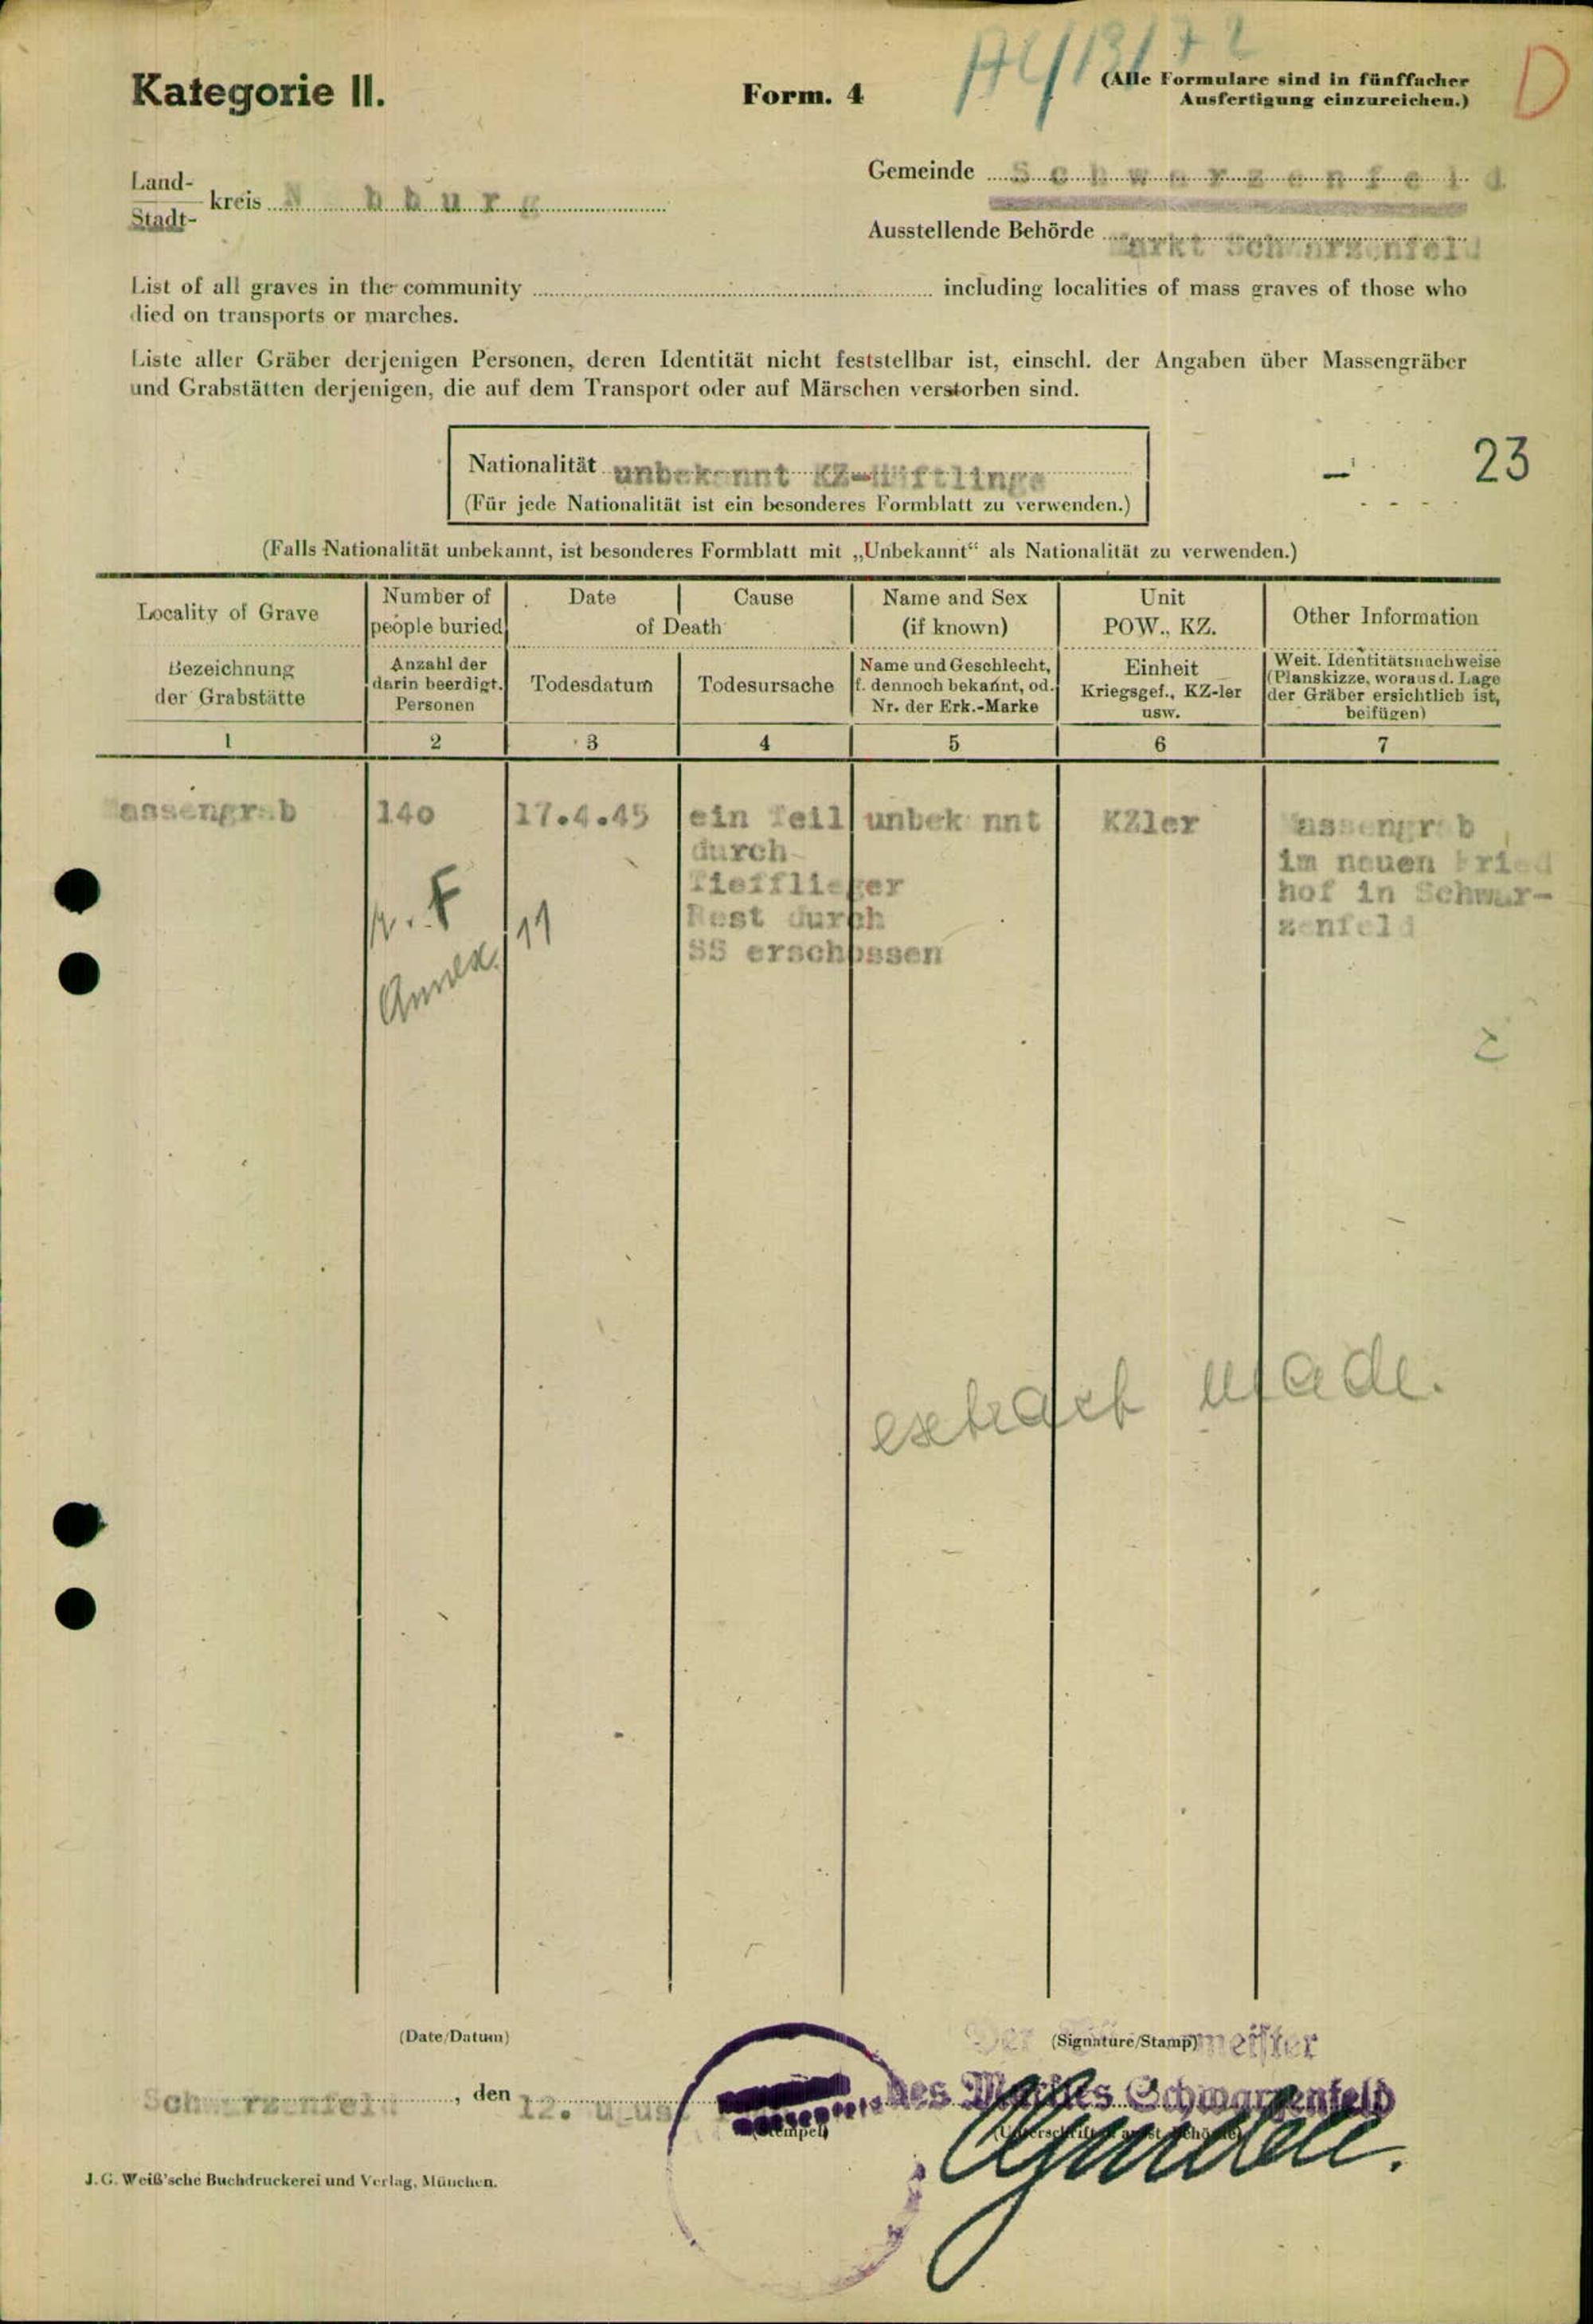 Kategorie II.
Form. 4
(Alle Formulare sind in fünffacher
Ausfertigung einzureichen.)
D
Land-
Stadt-
kreis
Gemeinde Schwarzenfeld
Ausstellende Behörde Markt Schwarzenfeld
List of all graves in the community including localities of mass graves of those who
died on transports or marches.
Liste aller Gräber derjenigen Personen, deren Identität nicht feststellbar ist, einschl. der Angaben über Massengräber
und Grabstätten derjenigen, die auf dem Transport oder auf Märschen verstorben sind.
Nationalität unbekannt KZ-Häftlinge
(Für jede Nationalität ist ein besonderes Formblatt zu verwenden.)
23
(Falls Nationalität unbekannt, ist besonderes Formblatt mit „Unbekannt“ als Nationalität zu verwenden.)
Locality of Grave
Number of
people buried
Date
Cause
of Death
Name and Sex
(if known)
Unit
POW., KZ.
Other Information
Bezeichnung
der Grabstätte
Anzahl der
darin beerdigt.
Personen
Todesdatum
Todesursache
Name und Geschlecht,
f. dennoch bekannt, od.
Nr. der Erk.-Marke
Einheit
Kriegsgef., KZ-ler
usw.
Weit. Identitätsnachweise
(Planskizze, woraus d. Lage
der Gräber ersichtlich ist,
beifügen)
1 2 3 4 5 6 7
Massengrab 140 17.4.45 ein Teil unbekannt KZler Massengrab
durch im neuen Fried
Tiefflieger hof in Schwar-
Rest durch zenfeld
SS erschossen
Annex. 11
extract made.
(Date/Datum)
(Signature/Stamp)
Der Bürgermeister
Schwarzenfeld, den 12. August
des Marktes Schwarzenfeld
(Stempel)
J. G. Weiß'sche Buchdruckerei und Verlag, München.